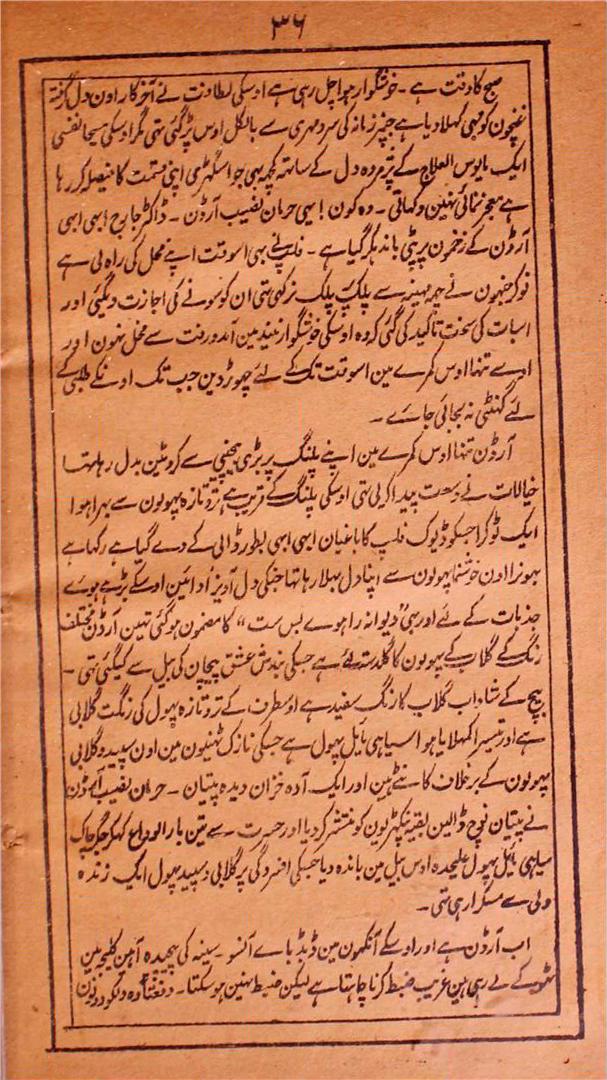 ۳۶
صبح کا وقت ہے ۔ خوشگوار ہوا چل رہی ہے اوسکی لطاونت نے آخر کار اون دل گرفتہ
غنچون کو بھی کہلا دیا ہے جنپر زمانہ کی سرد مہری سے بالکل اوس پڑ گئی تہی مگر اوسکی مسیحا نفسی
ایک مایوس العلاج کے پژمردہ دل کے ساتہہ کچہہ بہی جو اسگہڑی اپنی قسمت کا فیصلہ کر رہا
ہے معجز نمائی نہین دکہاتی ۔ وہ کون ! یہی حرمان نصیب آرڈن ۔ ڈاکٹر جارج ابہی ابہی
آرڈن کے زخمون پر پٹی باندہ کر گیا ہے ۔ فلپ نے بہی اسوقت اپنے محل کی راہ لی ہے
نوکر جنہون نے چہہ مہینہ سے پلک پر پلک نرکہی تہی ان کو سونے کی اجازت دیگئی اور
اسبات کی سخت تاکید کی گئی کہ وہ اوسکی خوشگوار نیند مین آمد و رفت سے مخل نہون اور
اوسے تنہا اوس کمرے مین اسوقت تک کے لئے چہوڑ دین جب تک اونکے طلبی کے
لئے گہنٹی نہ بجائی جائے ۔
آرڈن تنہا اوس کمرے مین اپنے پلنگ پر بڑی بیچینی سے کروٹین بدل رہا تہا
خیالات نے وسعت پیدا کر لی تہی اوسکی پلنگ کے قریب ہی تر و تازہ پہولون سے بہرا ہوا
ایک ٹوکرا جسکو ڈیوک فلپ کا باغبان ابہی ابہی بطور ڈالی کے دے گیا ہے رکہا ہے
بہونرا اون خوشنما پہولون سے اپنا دل بہلا رہا تہا جنکی دل آویز ادائین اوسکے بڑہے ہوے
جذبات کے لئے اور بہی "دیوانہ را ہوے بس ست" کا مضمون ہو گئی تہین آرڈن مختلف
رنگ کے گلاب کے پہولون کا گلدستہ لئے ہے جسکی بندش عشق پیچان کی بیل سے کیگئی تہی ۔
بیچ کے شاداب گلاب کا رنگ سفید ہے اوسطرف کے تر و تازہ پہول کی رنگت گلابی
ہے اور تیسرا کمہلایا ہوا سیاہی مایل پہول ہے جسکی نازک ٹہنیون مین اون سپید و گلابی
پہولون کے برخلاف کانٹے ہین اور ایک آدہ خزان دیدہ پتیان ۔ حرمان نصیب آرڈن
نے پتیان نوچ ڈالین بقیہ پنکہڑیون کو منتشر کر دیا اور حسرت سے تین بار الوداع کہکر جگر چاک
سیاہی مایل پہول علیحدہ اوس بیل مین باندہ دیا جسکی افسردگی پر گلابی و سپید پہول ایک زندہ
دلی سے مسکرا رہی تہی ۔
اب آرڈن ہے اور اوسکے آنکہون مین ڈبڈبائے آنسو ۔ سینہ کی پیچیدہ آہین کلیجہ مین
ٹہوکے لے رہی ہین غریب ضبط کرنا چاہتا ہے لیکن ضبط نہین ہو سکتا ۔ دفعتاً وہ